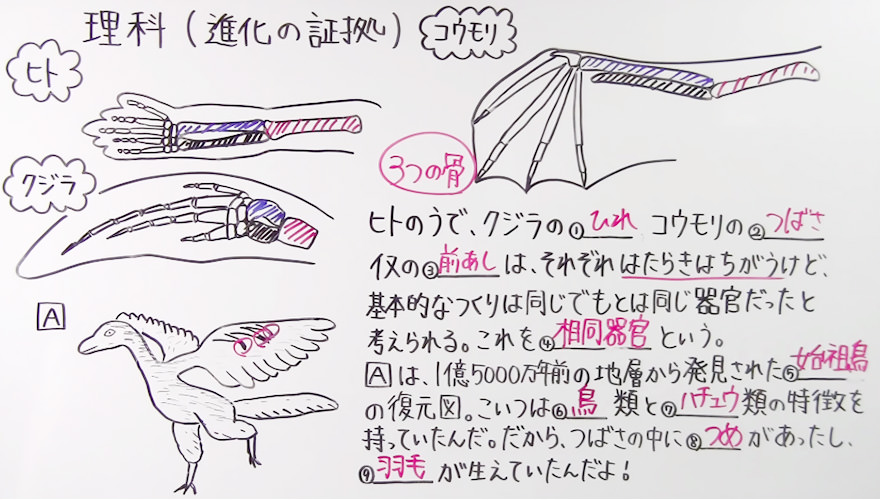 理科(進化の証拠)
コウモリ
ヒト
3つの骨
クジラ
ヒトのうで、クジラの①ひれ コウモリの②つばさ
イヌの③前あしは、それぞれはたらきはちがうけど、
基本的なつくりは同じでもとは同じ器官だったと
考えられる。これを④相同器官という。
Aは、1億5000万年前の地層から発見された⑤始祖鳥
の復元図。こいつは⑥鳥類と⑦ハチュウ類の特徴を
持っていたんだ。だから、つばさの中に⑧つめがあったし、
⑨羽毛が生えていたんだよ!
A